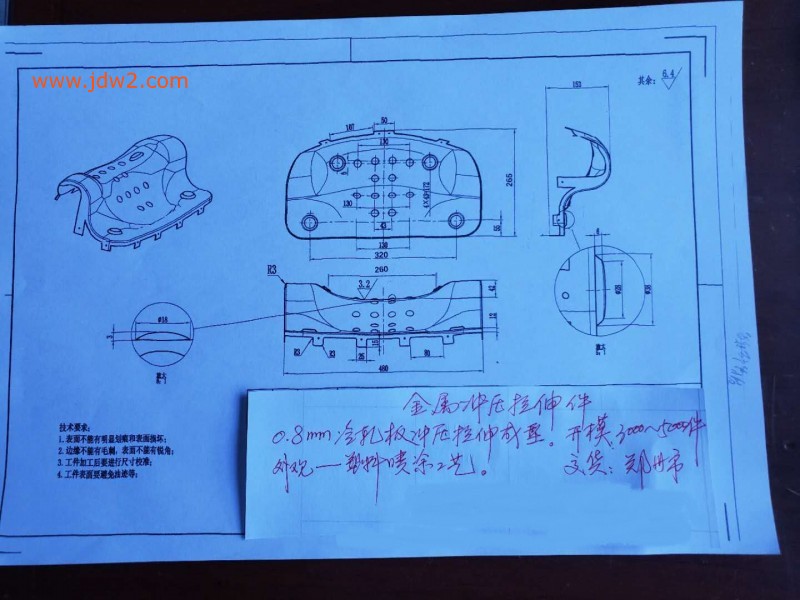 www.jdw2.com
其余: 6.4
153
50
107
130
265
130
43
55
130
320
260
R3
3.2
42
12
15
R3
R3
26
80
460
Φ18
3
6
Φ28
Φ38
技术要求:
1.表面不能有明显划痕和表面损坏;
2.边缘不能有毛刺,表面不能有锐角;
3.工件加工后要进行尺寸校准;
4.工件表面要避免油迹等;
金属冲压拉伸件
0.8mm冷轧板冲压拉伸成型。开模 3000~5000件
外观—塑料喷涂工艺。 交货:郑州市